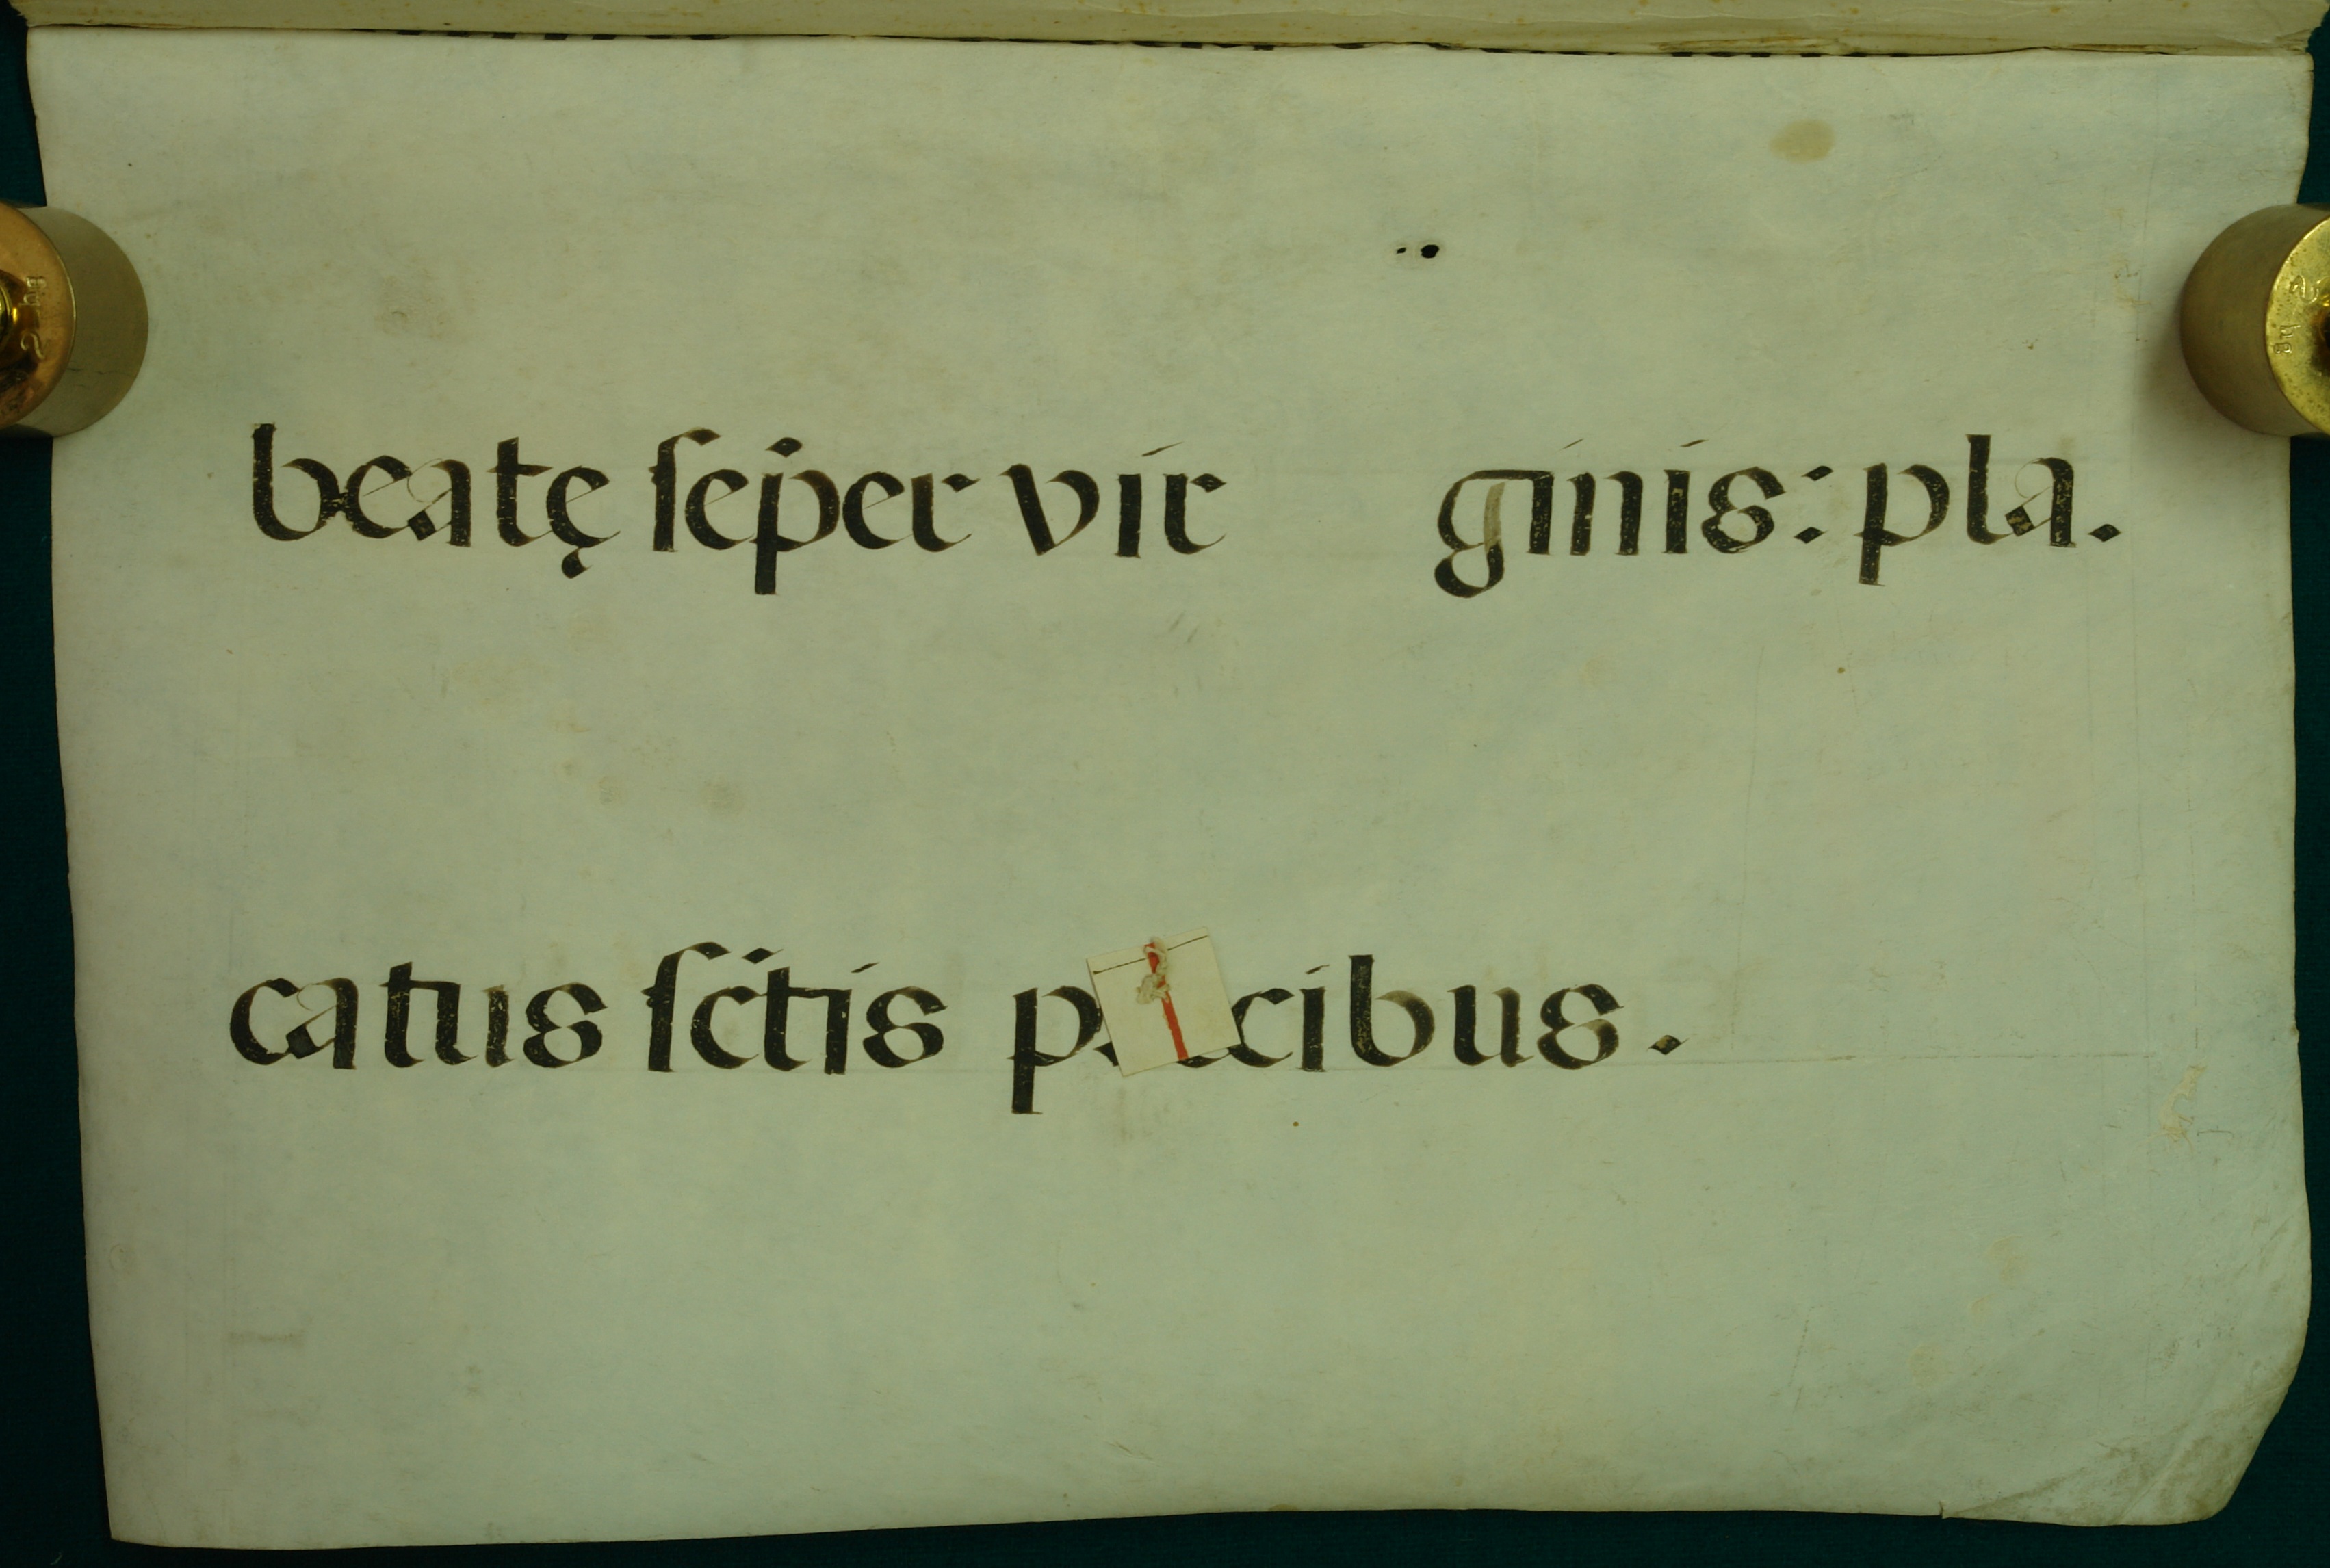 beatę ſep̄er vir ginis: pla.
catus ſc̄tis cibus.